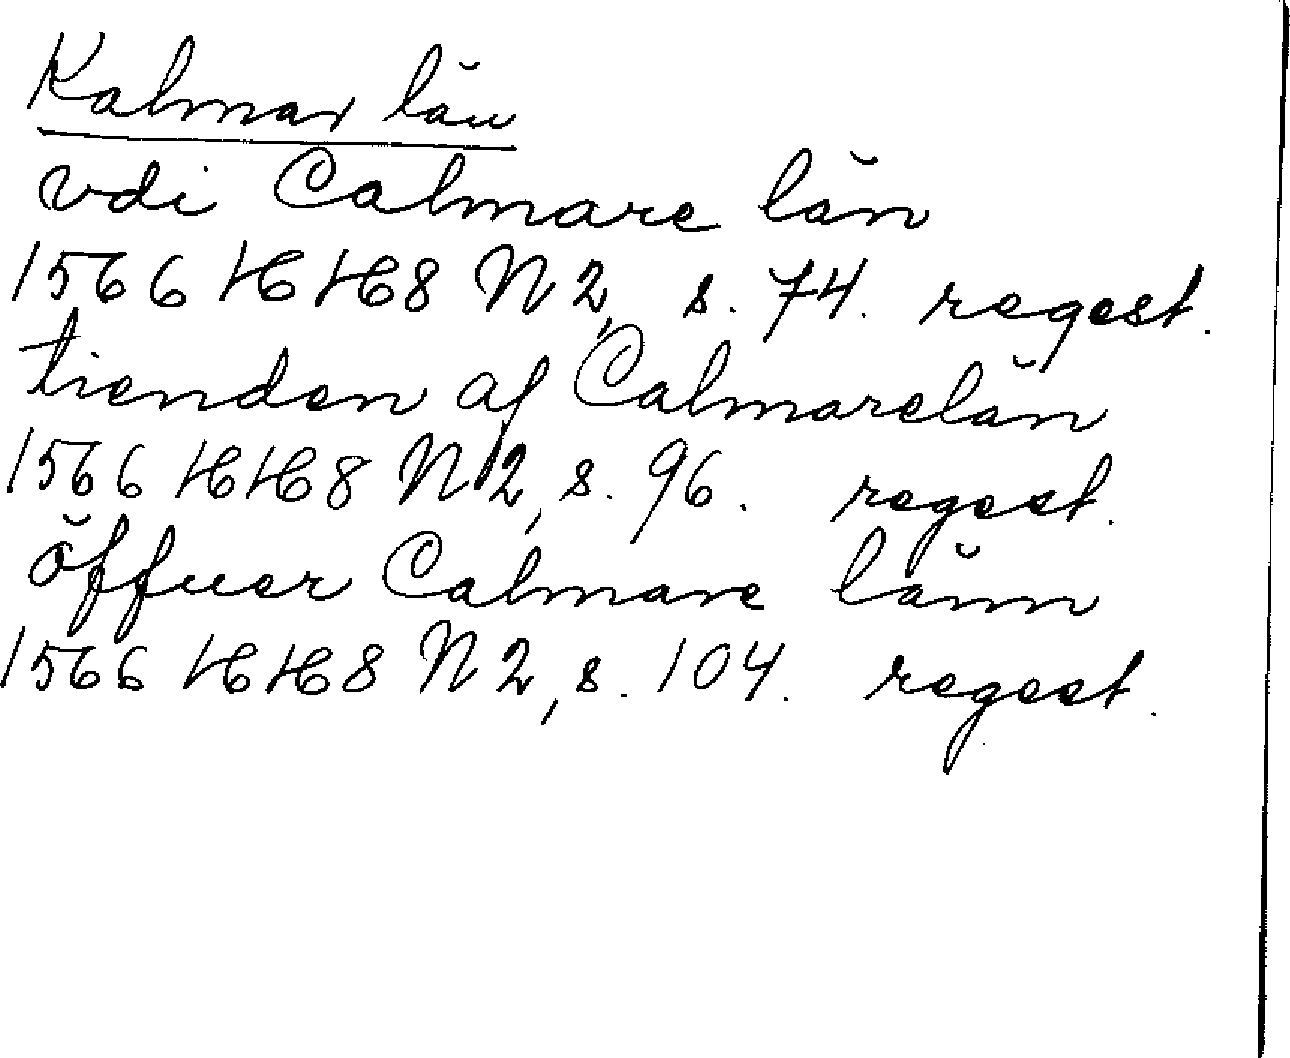 Kalmar län
vdi Calmare län
1566 HH8 N2, s. 74. regest.
tienden af Calmarelän
1566 HH8 N2, s. 96. regest.
öffuer Calmare länn
1566 HH8 N2, s. 104. regest.